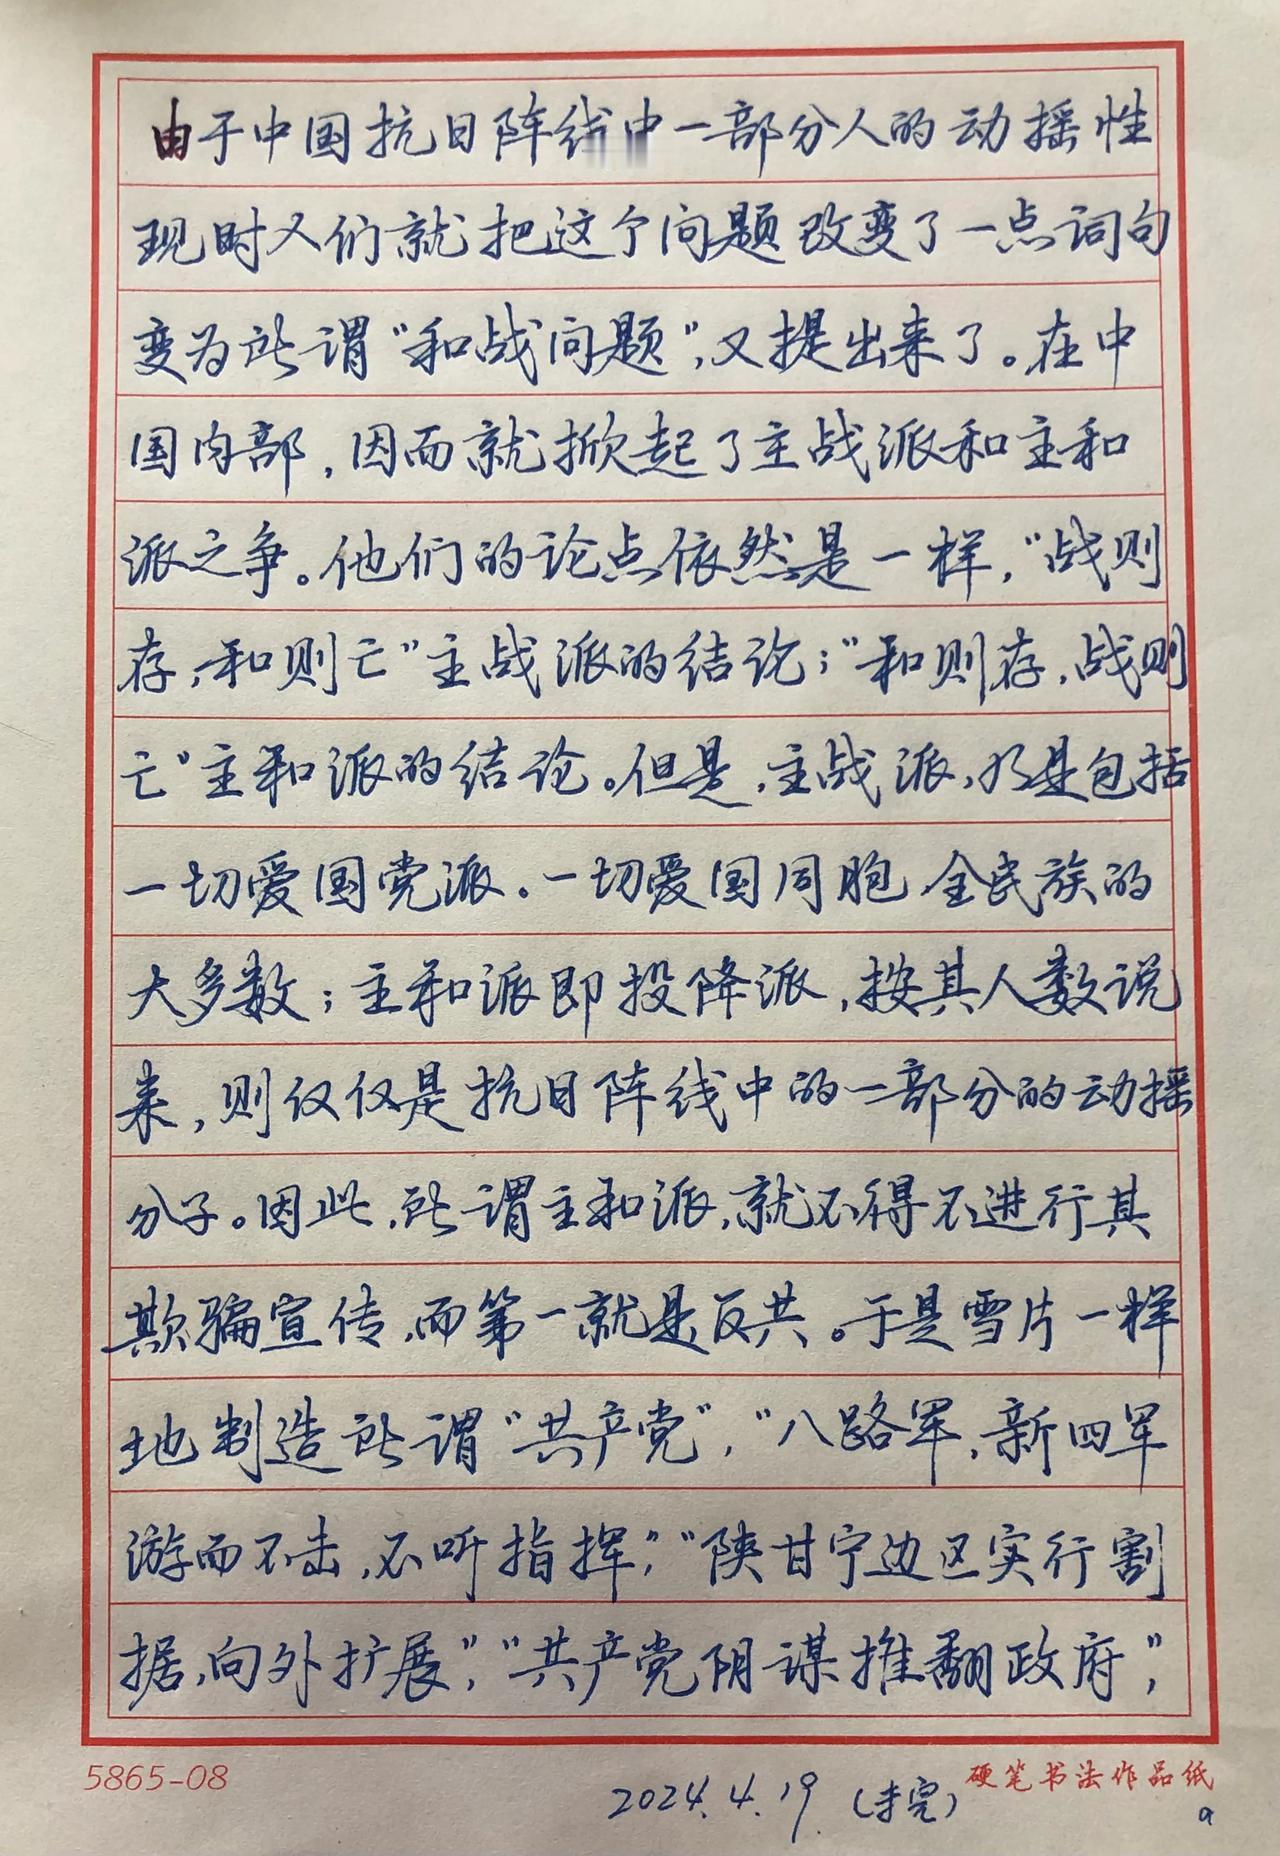 由于中国抗日阵线中一部分人的动摇性
现时又们就把这个问题改变了一点词句
变为所谓“和战问题”,又提出来了。在中
国内部,因而就掀起了主战派和主和
派之争。他们的论点依然是一样,“战则
存,和则亡”主战派的结论;“和则存,战则
亡”主和派的结论。但是,主战派,乃是包括
一切爱国党派。一切爱国同胞 全民族的
大多数;主和派即投降派,按其人数说
来,则仅仅是抗日阵线中的一部分的动摇
分子。因此,所谓主和派,就不得不进行其
欺骗宣传,而第一就是反共。于是雪片一样
地制造所谓“共产党”,“八路军,新四军
游而不击,不听指挥”,“陕甘宁边区实行割
据,向外扩展”,“共产党阴谋推翻政府”,
5865-08
硬笔书法作品纸
2024.4.19 (未完)
9